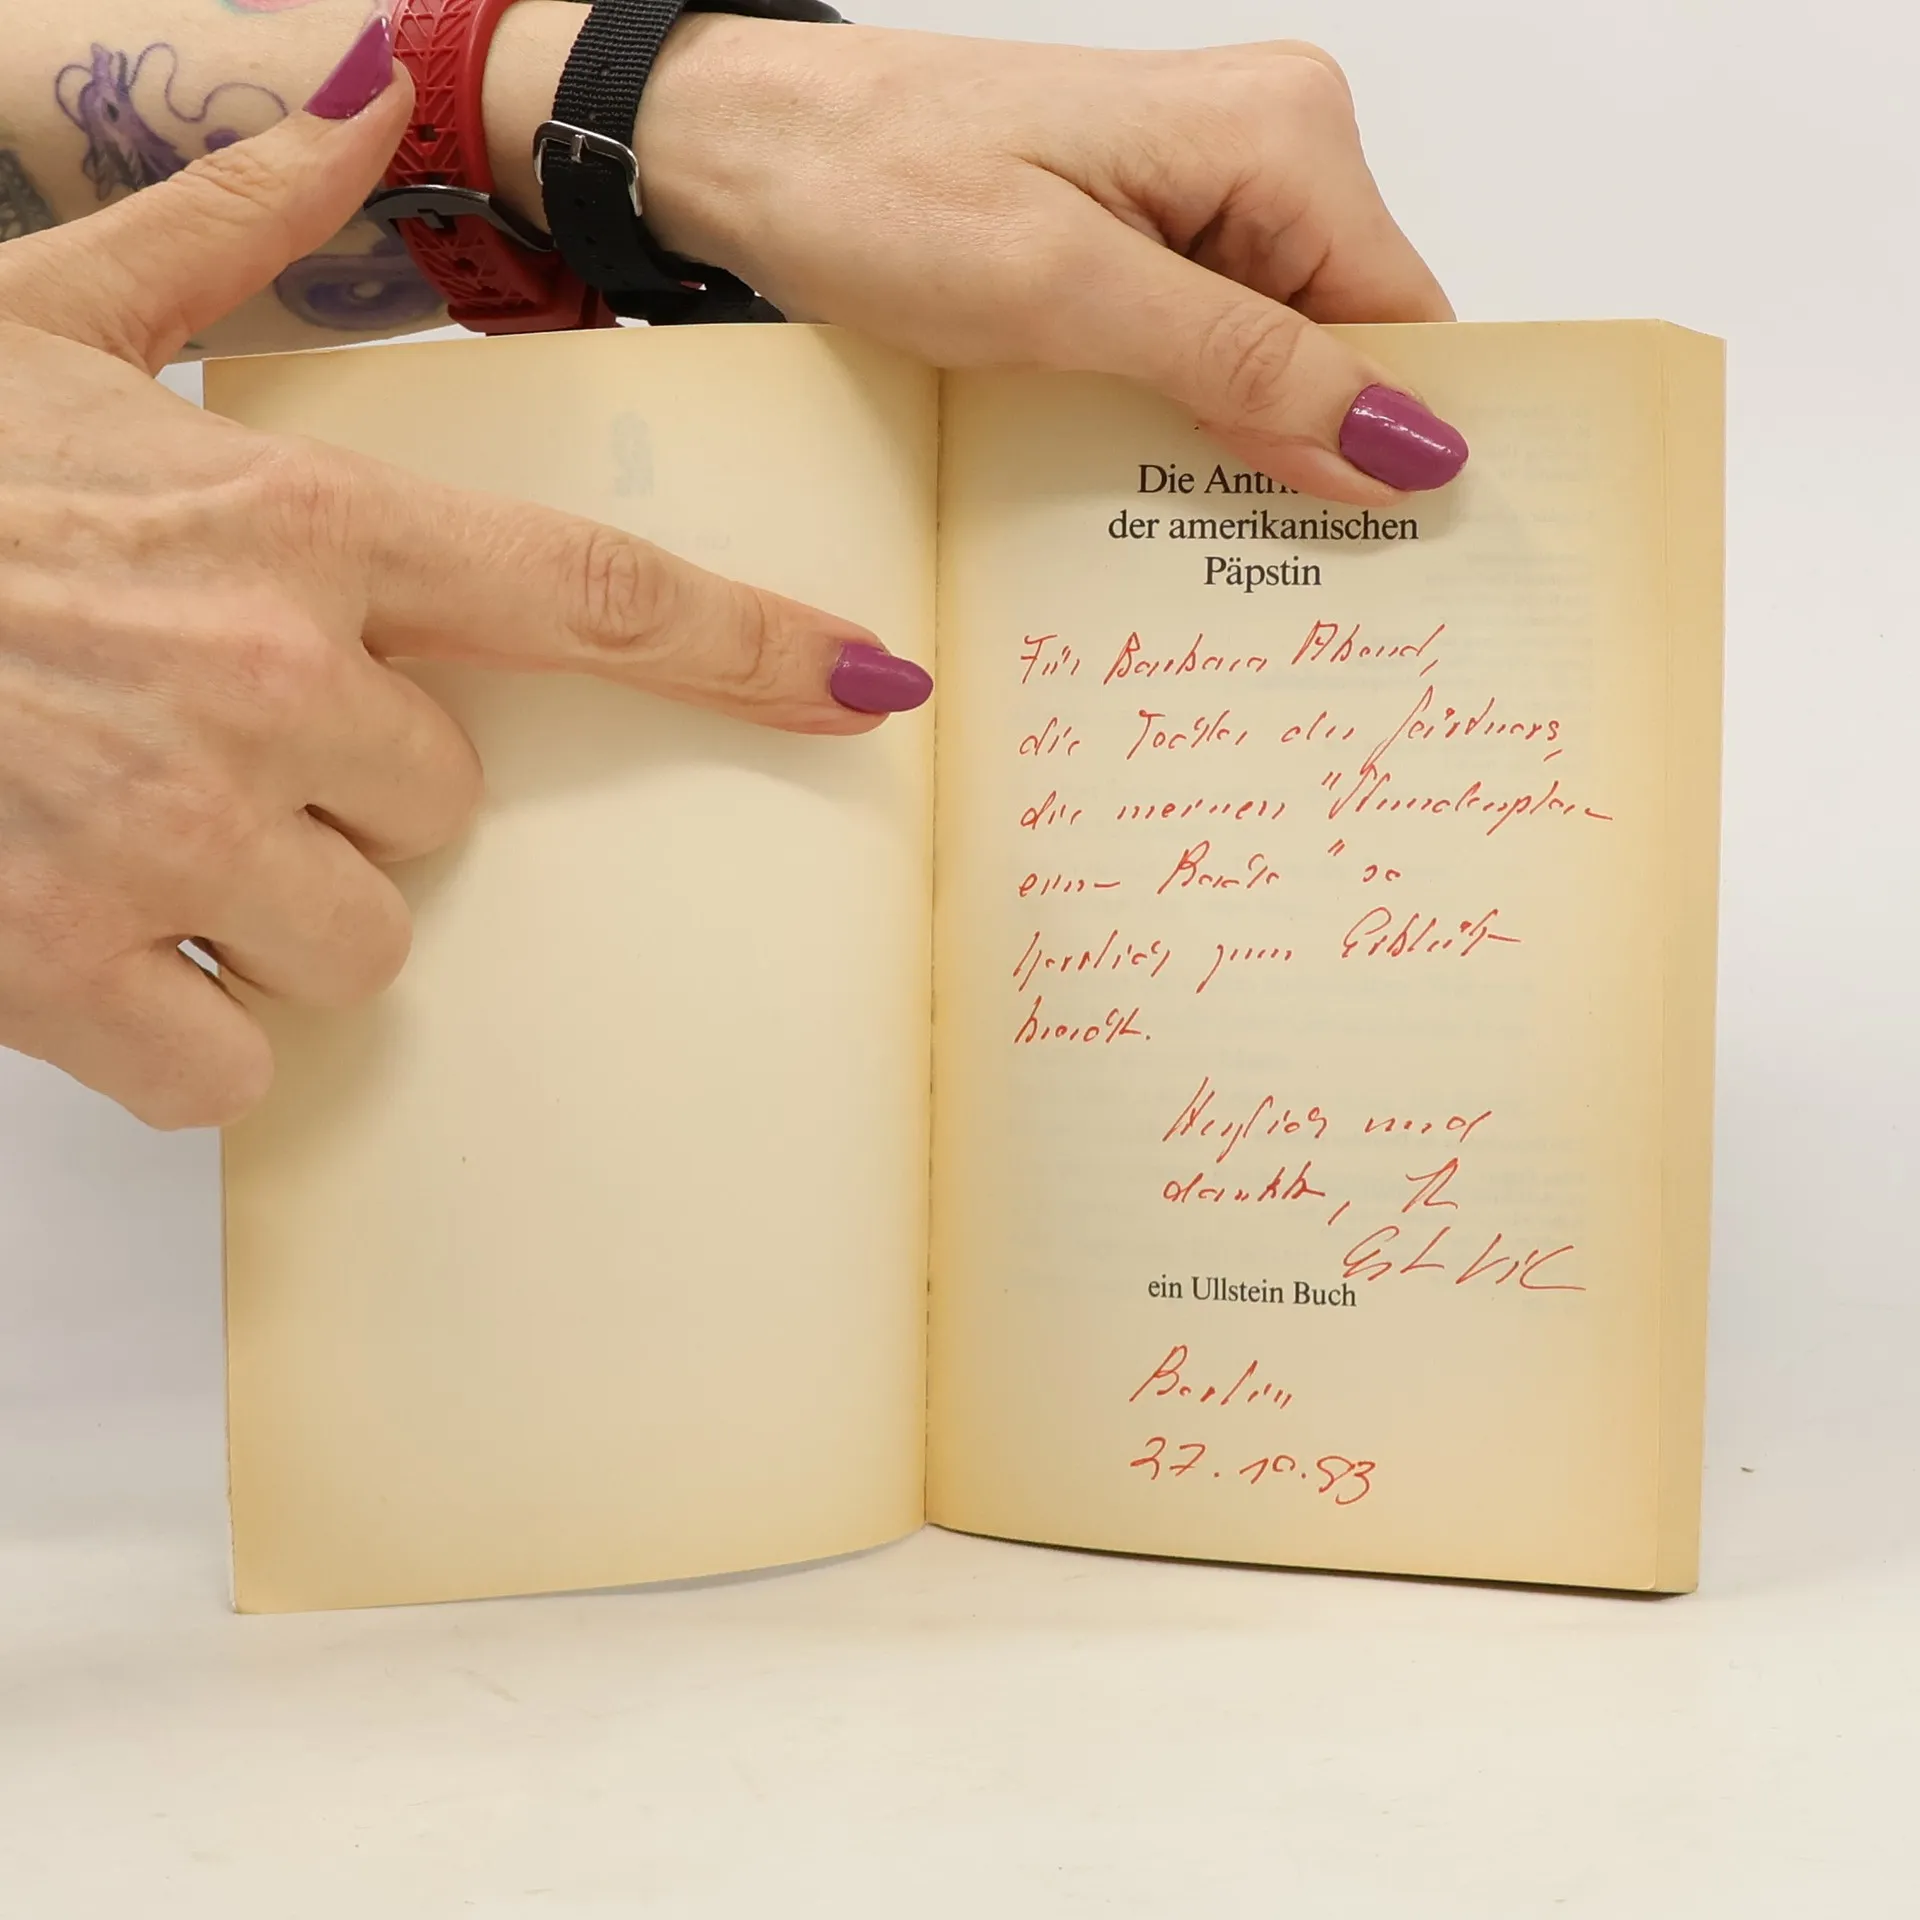 Die Antri
der amerikanischen
Päpstin
Für Barbara Abend,
die Tochter des Gärtners,
die meinen "Stundenplan
einer Rache" so
herrlich zum Erblühen
bracht.
Herzlich und
dankbar,
Esther Vilar
ein Ullstein Buch
Berlin
27.10.83